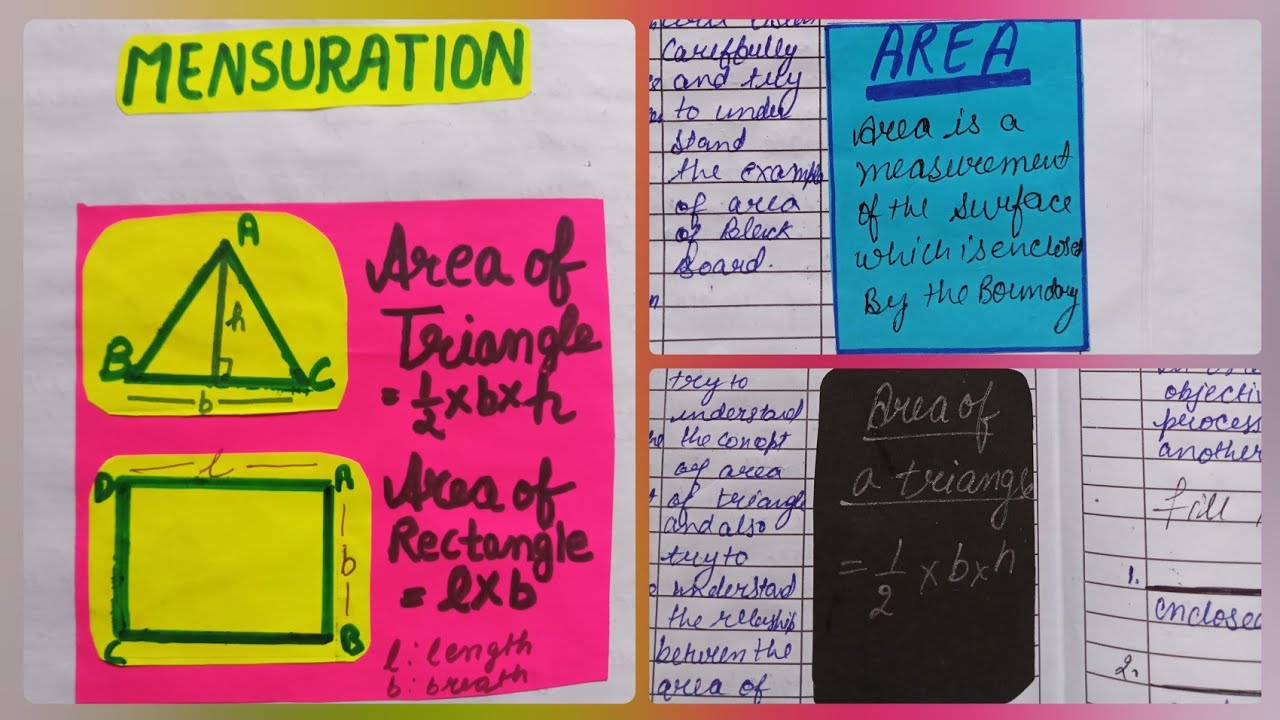 MENSURATION
A
h
B
C
b
Area of
Triangle
= 1/2 × b × h
l
D
A
b
C
B
Area of
Rectangle
= l × b
l : length
b : breath
Carefbully
and try
to under
stand
the example
of area
of Black
Board.
AREA
Area is a
measurement
of the surface
which is enclosed
By the Boundary
try to
understand
the conopt
of area
of triangle
and also
try to
understand
the relership
between the
area of
Area of
a triangle
= 1/2 × b × h
objecti
process
another
fill
1.
enclosed
2.